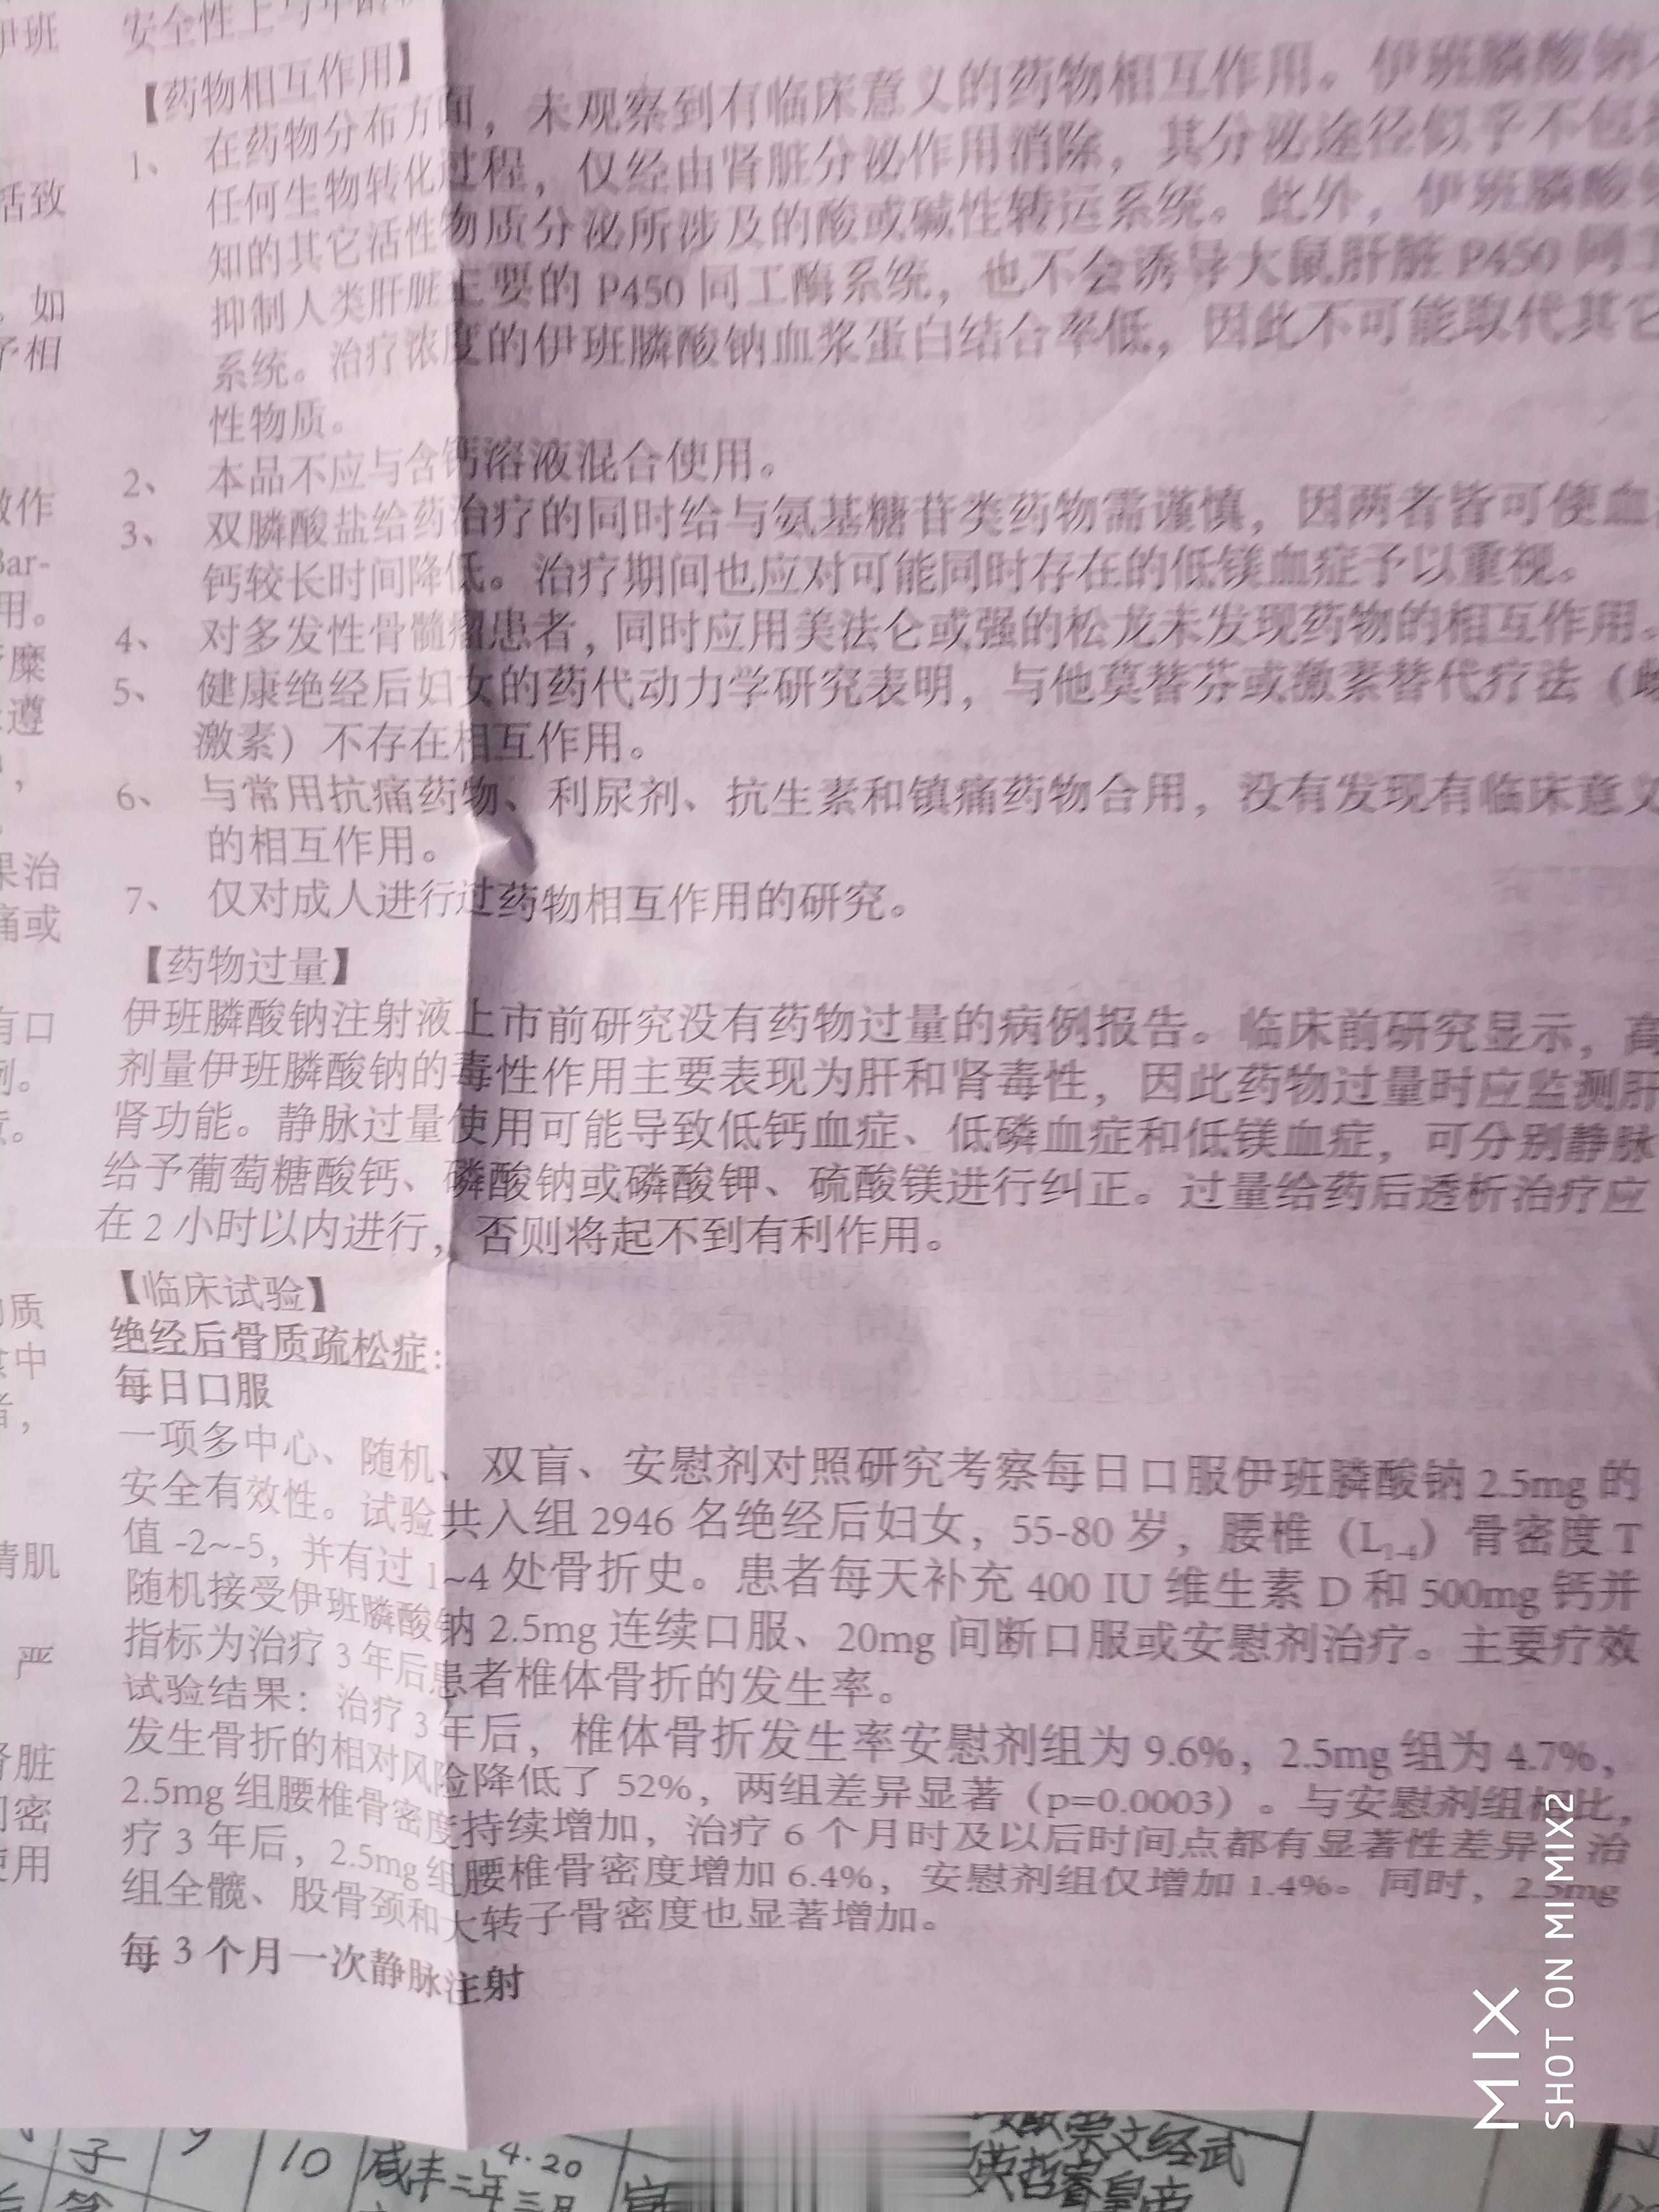 伊班
活致
，如
予相
改作
Bar-
用。
糜
遵
，
果治
痛或
有口
例。
质
中
，
清肌
严
肾脏
密
使用
安全性上与年龄
【药物相互作用】
1、 在药物分布方面，未观察到有临床意义的药物相互作用。伊班膦酸钠
任何生物转化过程，仅经由肾脏分泌作用消除，其分泌途径似乎不包
知的其它活性物质分泌所涉及的酸或碱性转运系统。此外，伊班膦酸
抑制人类肝脏主要的 P450 同工酶系统，也不会诱导大鼠肝脏 P450 同工
系统。治疗浓度的伊班膦酸钠血浆蛋白结合率低，因此不可能取代其它
性物质。
2、 本品不应与含钙溶液混合使用。
3、 双膦酸盐给药治疗的同时给与氨基糖苷类药物需谨慎，因两者皆可使血
钙较长时间降低。治疗期间也应对可能同时存在的低镁血症予以重视。
4、 对多发性骨髓瘤患者，同时应用美法仑或强的松龙未发现药物的相互作用。
5、 健康绝经后妇女的药代动力学研究表明，与他莫替芬或激素替代疗法（雌
激素）不存在相互作用。
6、 与常用抗痛药物、利尿剂、抗生素和镇痛药物合用，没有发现有临床意义
的相互作用。
7、 仅对成人进行过药物相互作用的研究。
【药物过量】
伊班膦酸钠注射液上市前研究没有药物过量的病例报告。临床前研究显示，高
剂量伊班膦酸钠的毒性作用主要表现为肝和肾毒性，因此药物过量时应监测肝
肾功能。静脉过量使用可能导致低钙血症、低磷血症和低镁血症，可分别静脉
给予葡萄糖酸钙、磷酸钠或磷酸钾、硫酸镁进行纠正。过量给药后透析治疗应
在 2 小时以内进行，否则将起不到有利作用。
【临床试验】
绝经后骨质疏松症：
每日口服
一项多中心、随机、双盲、安慰剂对照研究考察每日口服伊班膦酸钠 2.5mg 的
安全有效性。试验共入组 2946 名绝经后妇女，55-80 岁，腰椎（L1-4）骨密度 T
值 -2~-5，并有过 1~4 处骨折史。患者每天补充 400 IU 维生素 D 和 500mg 钙并
随机接受伊班膦酸钠 2.5mg 连续口服、20mg 间断口服或安慰剂治疗。主要疗效
指标为治疗 3 年后患者椎体骨折的发生率。
试验结果：治疗 3 年后，椎体骨折发生率安慰剂组为 9.6%，2.5mg 组为 4.7%，
发生骨折的相对风险降低了 52%，两组差异显著（p=0.0003）。与安慰剂组相比，
2.5mg 组腰椎骨密度持续增加，治疗 6 个月时及以后时间点都有显著性差异。治
疗 3 年后，2.5mg 组腰椎骨密度增加 6.4%，安慰剂组仅增加 1.4%。同时，2.5mg
组全髋、股骨颈和大转子骨密度也显著增加。
每 3 个月一次静脉注射
MIX
SHOT ON MI MIX2
子
9
10
咸丰二年
4.20
三月
宗文经武
英哲睿皇帝